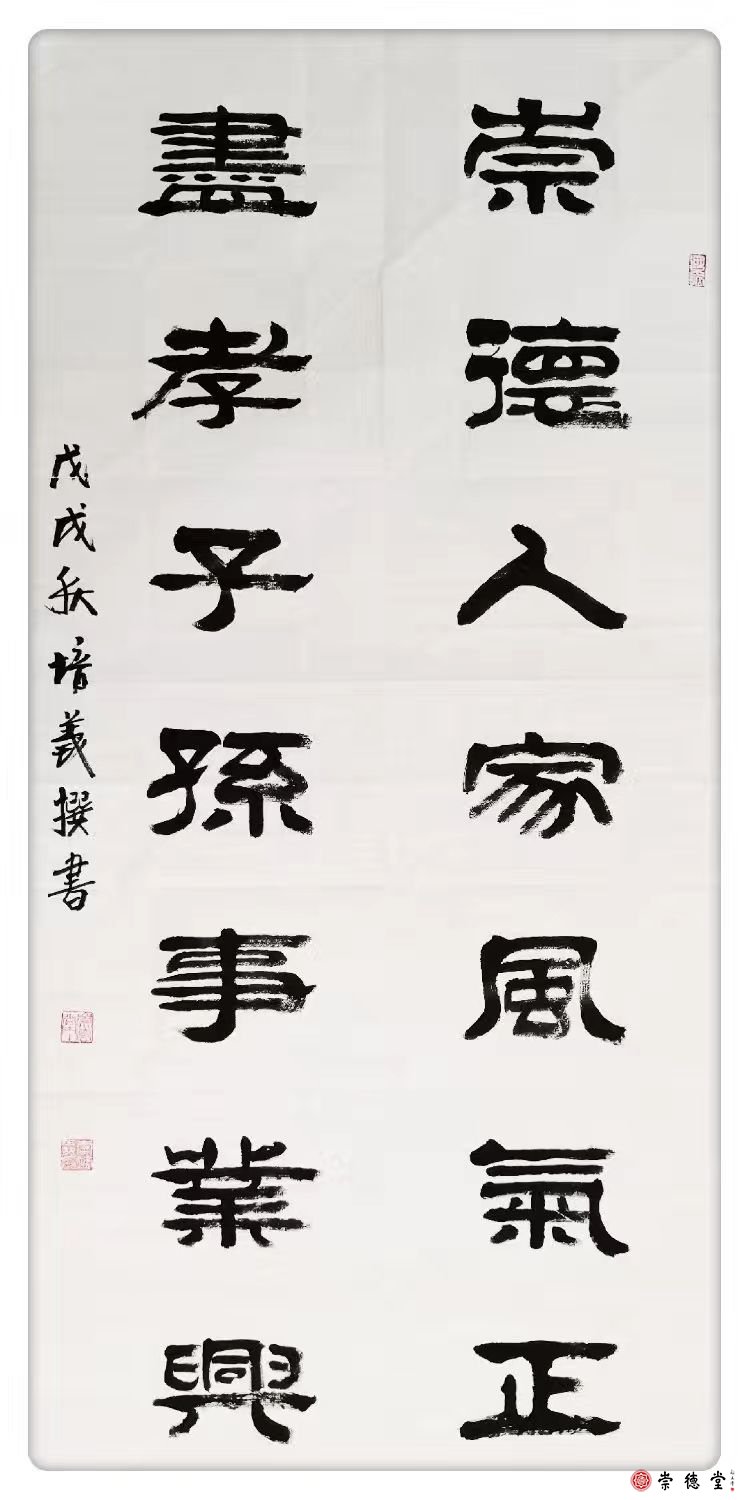 崇德人家風氣正
盡孝子孫事業興
戊戌秋培義撰書
崇德堂